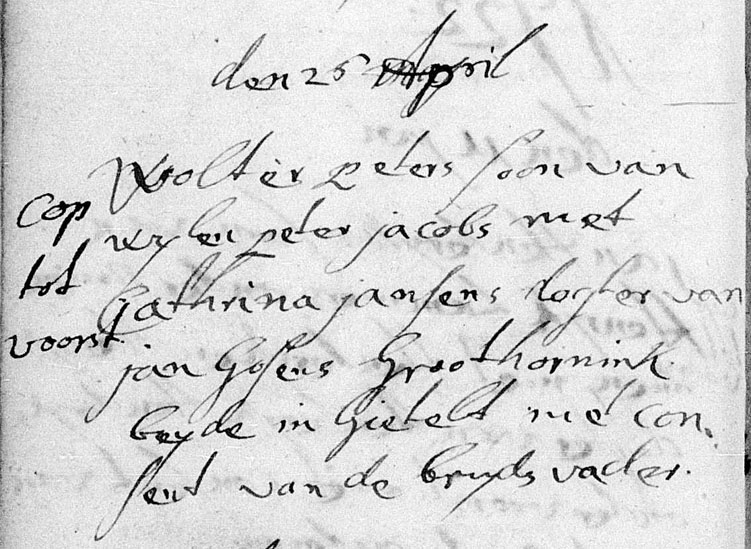 den 25 April
Wolter peters soon van
wylen peter jacobs met
Cathrina jansens dogter van
jan Gosens Groothornink
beyde in Gietelt met con,
sent van de bruyds vader.
Cop
tot
voorst